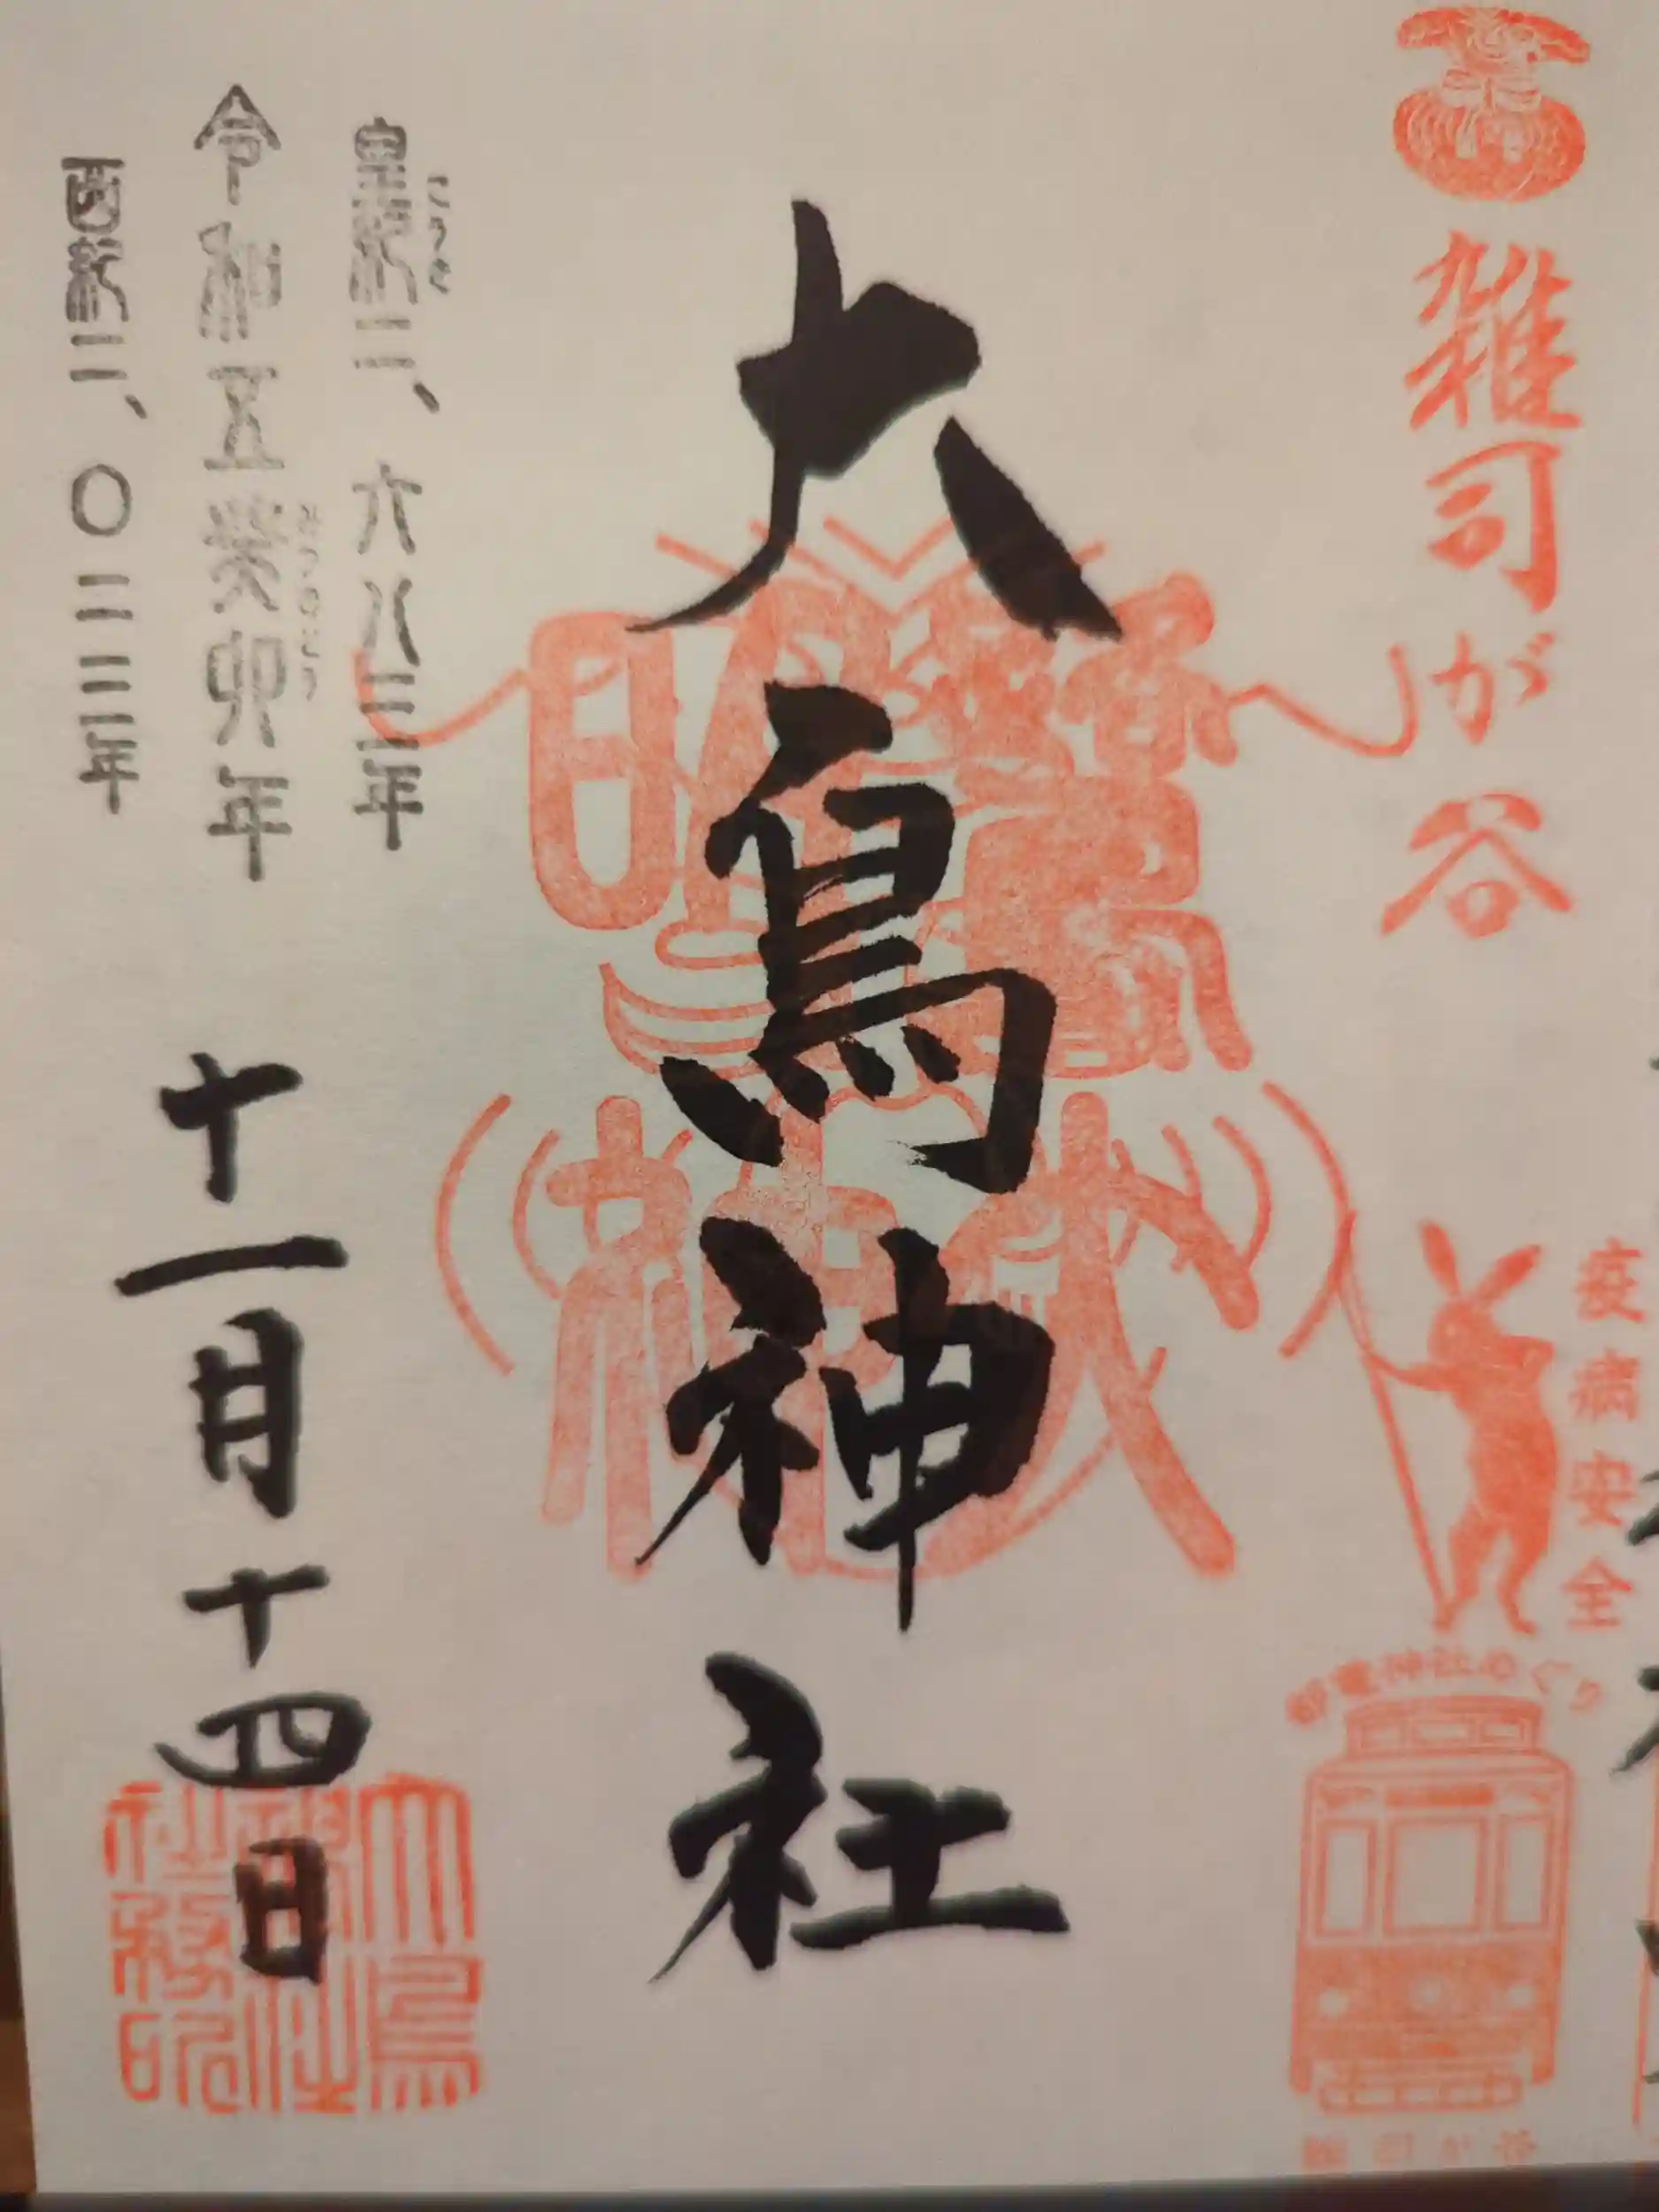 雑司が谷
疫病安全
都電神社めぐり
雑司が谷
大鳥神社
皇紀二、六八三年
こうき
令和五癸卯年
みずのとう
西紀二、〇二三年
十一月十四日
大鳥
神社
社務印